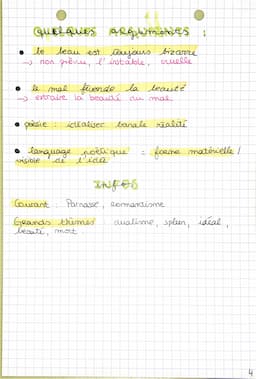 quelques arguments :
• le beau est toujours bizarre
→ non prévu, l'instable, cruelle
• le mal féconde la beauté
→ extraire la beauté du mal
• poésie : idéaliser banale réalité
• language poétique = forme matérielle /
visible de l'idée
INFOS
Courant : Parnasse, romantisme
Grands thèmes : dualisme, spleen, idéal,
beauté, mort.
4